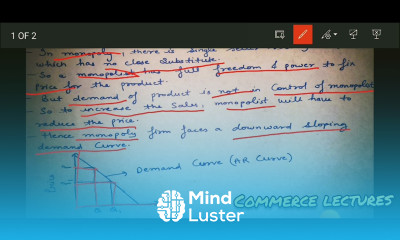 1 OF 2
In monopoly, there is single
which has no close substitute.
So a monopolist has full freedom & power to fix
price for the product.
But demand of product is not in control of monopolist
So to increase the sales, monopolist will have to
reduce the price.
Hence monopoly firm faces a downward sloping
demand curve.
Demand Curve (AR Curve)
Mind
Luster
COMMERCE LECTURES